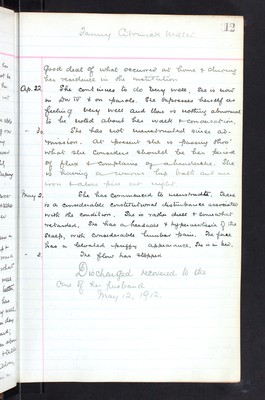 12
Fanny
good deal of what occurred at home & during
her residence in the institution
Ap. 22. She continues to do very well. She is now
on Dn IV & on parole. She expresses herself as
feeling very well and there is nothing abnormal
to be noted about her walk & conversation.
- 30. She has not menstruated since ad-
mission. At present she is passing thro'
what she considers should be her period
of flux & complains of headache. She
is having a nervous
at night.
May 2. She has commenced to menstruate. There
is a considerable constitutional disturbance associated
with the condition. She is rather dull & somewhat
retarded. She has a headache & hyperaesthesia of the
scalp, with considerable lumbar pain. The face
has a bloated puffy appearance. She is in bed.
- 5. The flow has stopped
Discharged recovered to the
care of her husband
May 12, 1912.